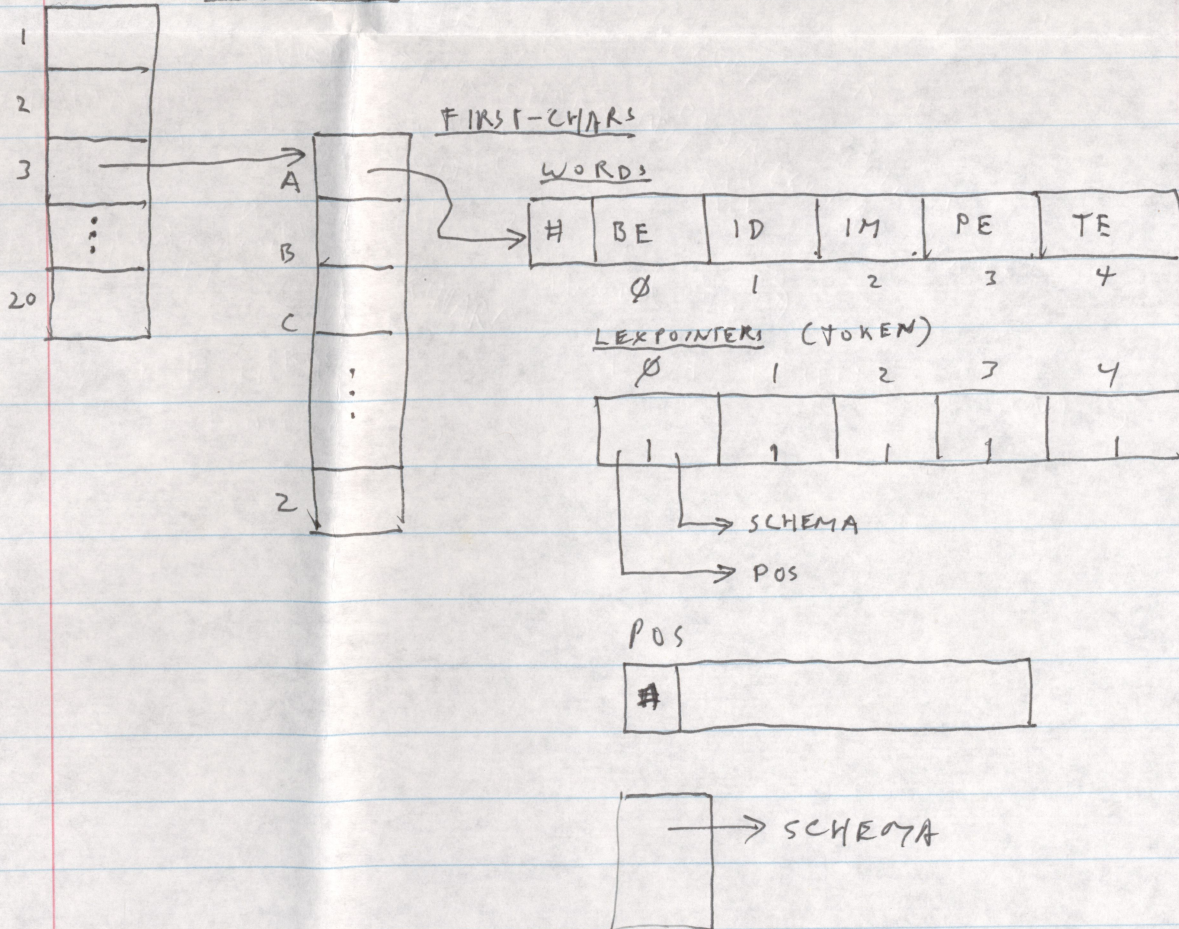 1
2
3
20
A
B
C
Z
FIRST-CHARS
WORDS
# BE ID IM PE TE
Ø 1 2 3 4
LEXPOINTERS (TOKEN)
Ø 1 2 3 4
SCHEMA
POS
POS
#
SCHEMA